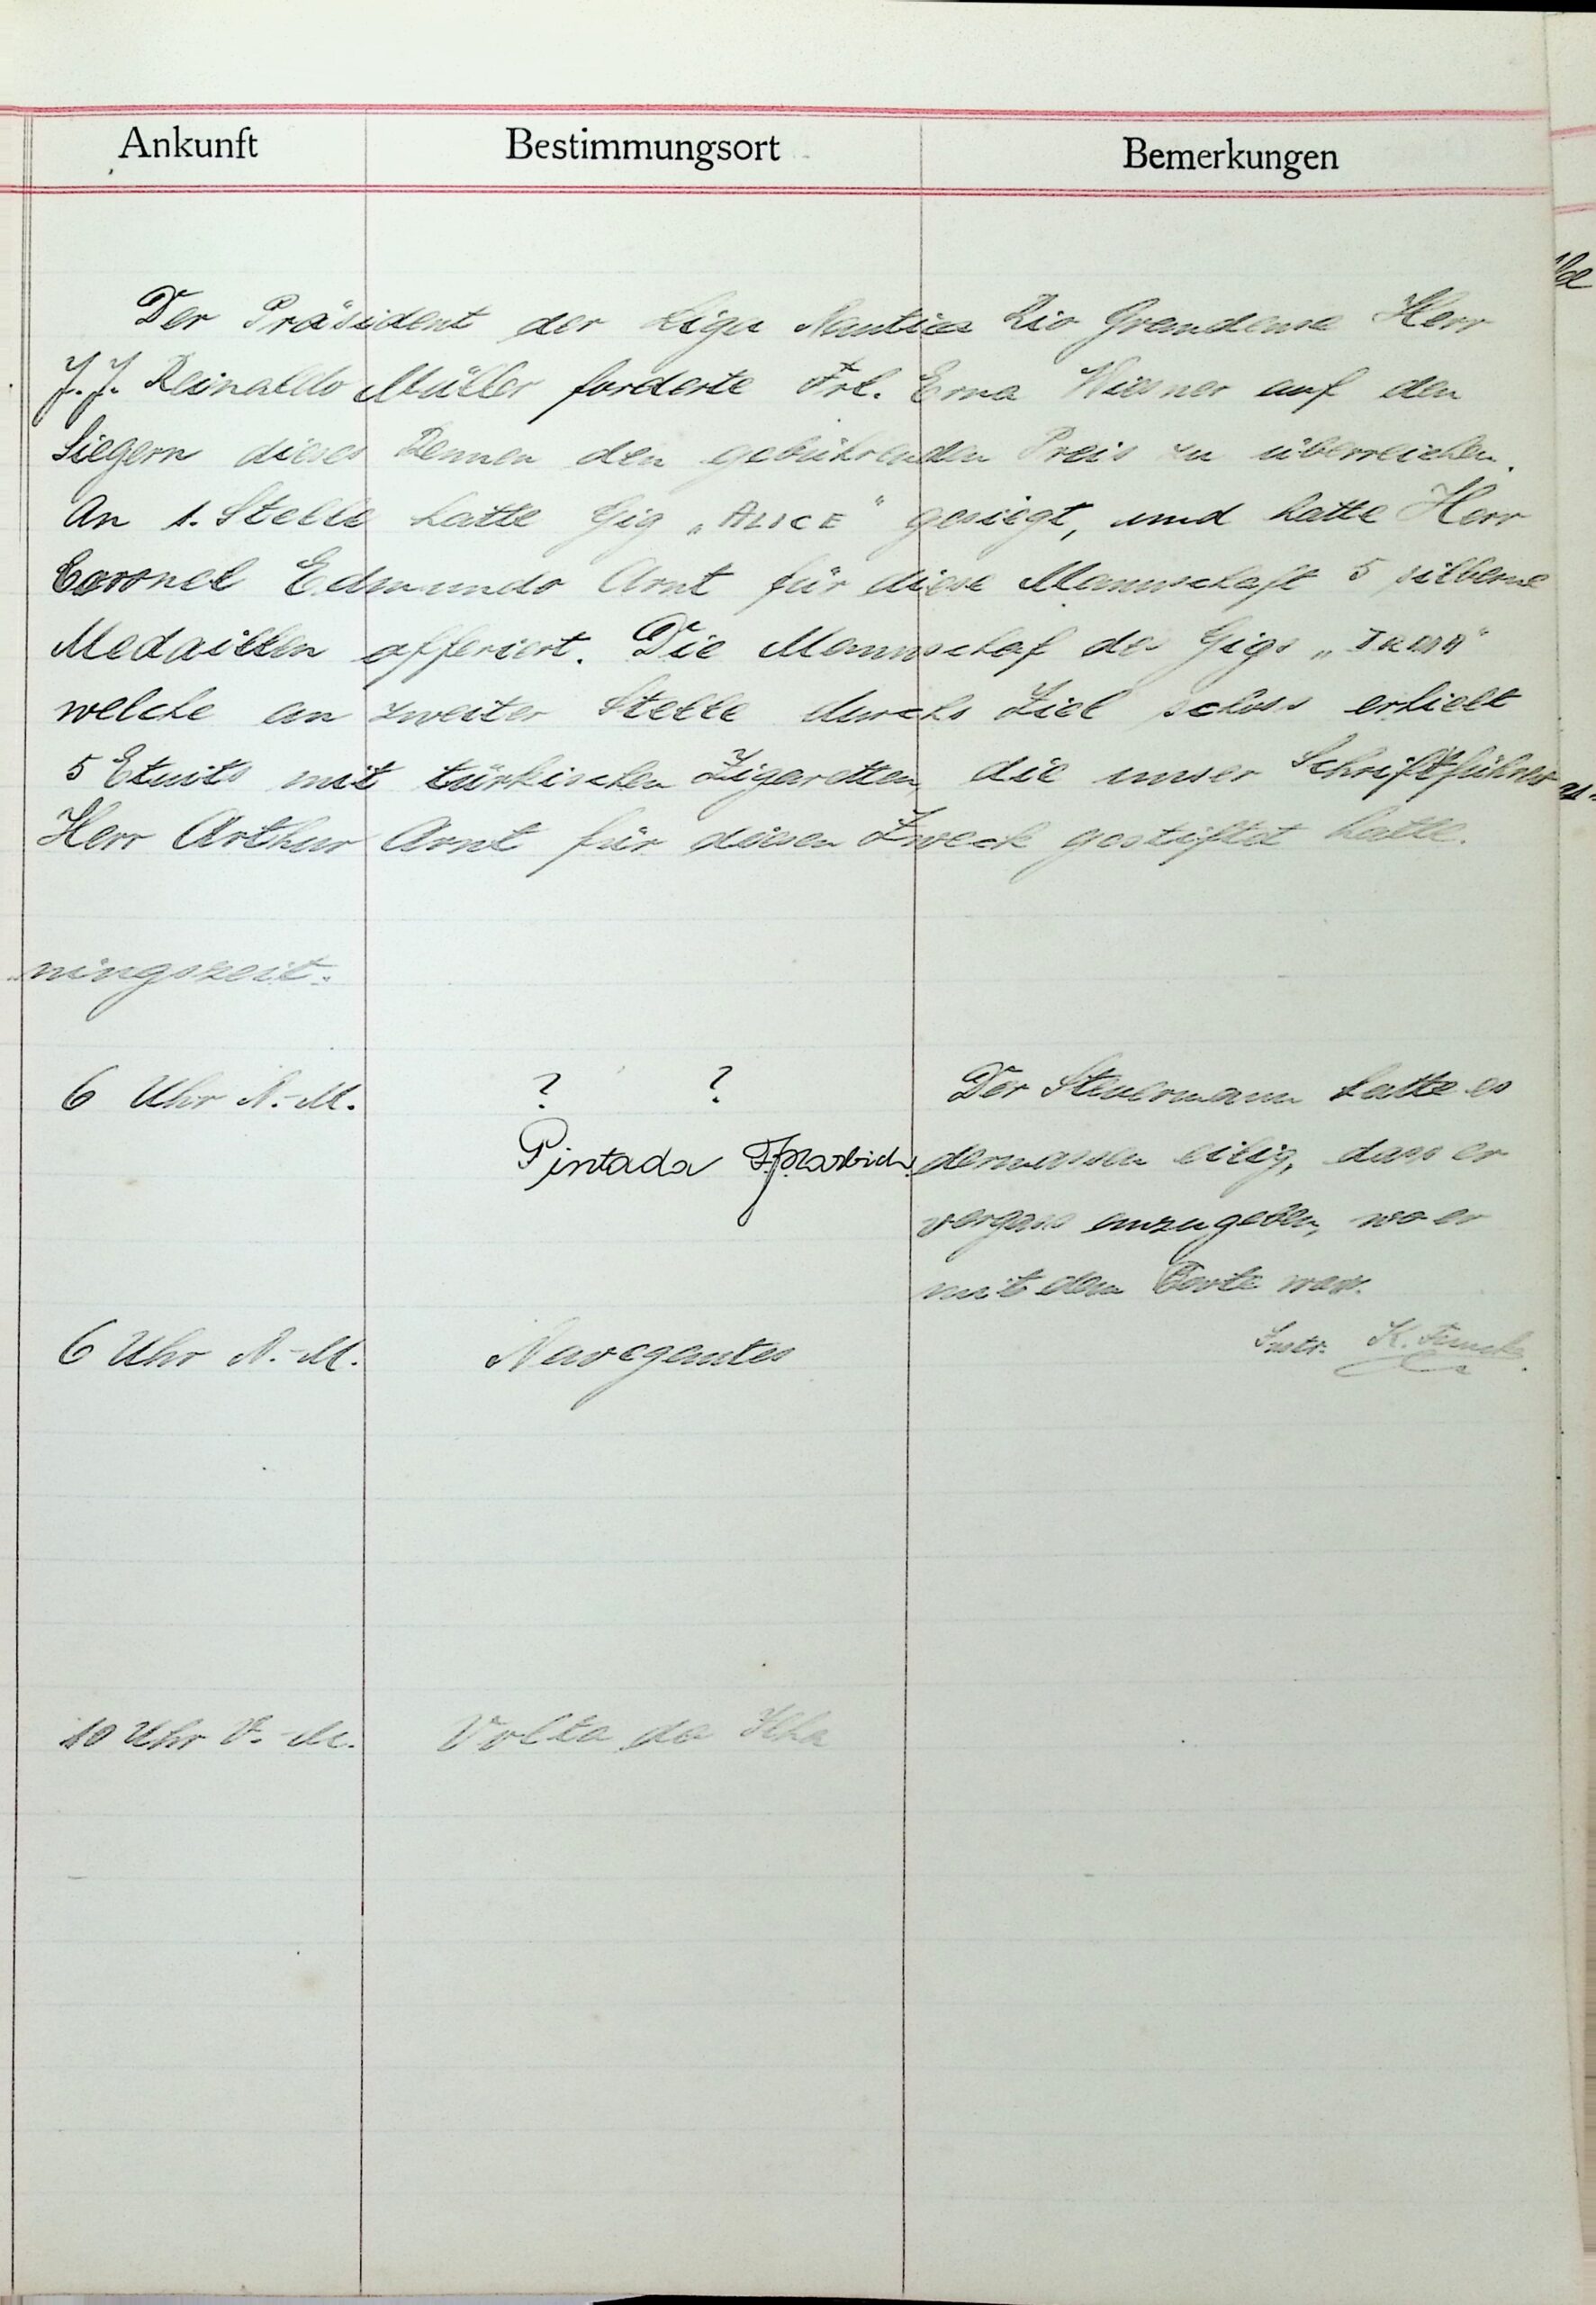 Ankunft Bestimmungsort Bemerkungen
Der Präsident der Liga Nautica Rio Grandense Herr
J.J. Reinaldo Müller forderte Frl. Erna Wiesner auf den
Siegern dieses Rennen den gebührenden Preis zu überreichen.
An 1. Stelle hatte Gig „ALICE" gesiegt, und hatte Herr
Coronel Edmundo Arnt für diese Mannschaft 5 silberne
Medaillen offeriert. Die Mannschaf des Gigs
welche an zweiter Stelle durchs Ziel schoss erhielt
5 Etuits mit türkischen Zigaretten die unser Schriftführer
Herr Arthur Arnt für diesen Zweck gestiftet hatte.
ningszeit.
6 Uhr N.-M. ? ? Der Steuermann hatte es
Pintada dermassen eilig, dass er
vergass anzugeben, wo er
mit dem Boote war.
6 Uhr N.-M. Navegantes Instr. K.
10 Uhr V.-M. Volta da Ilha